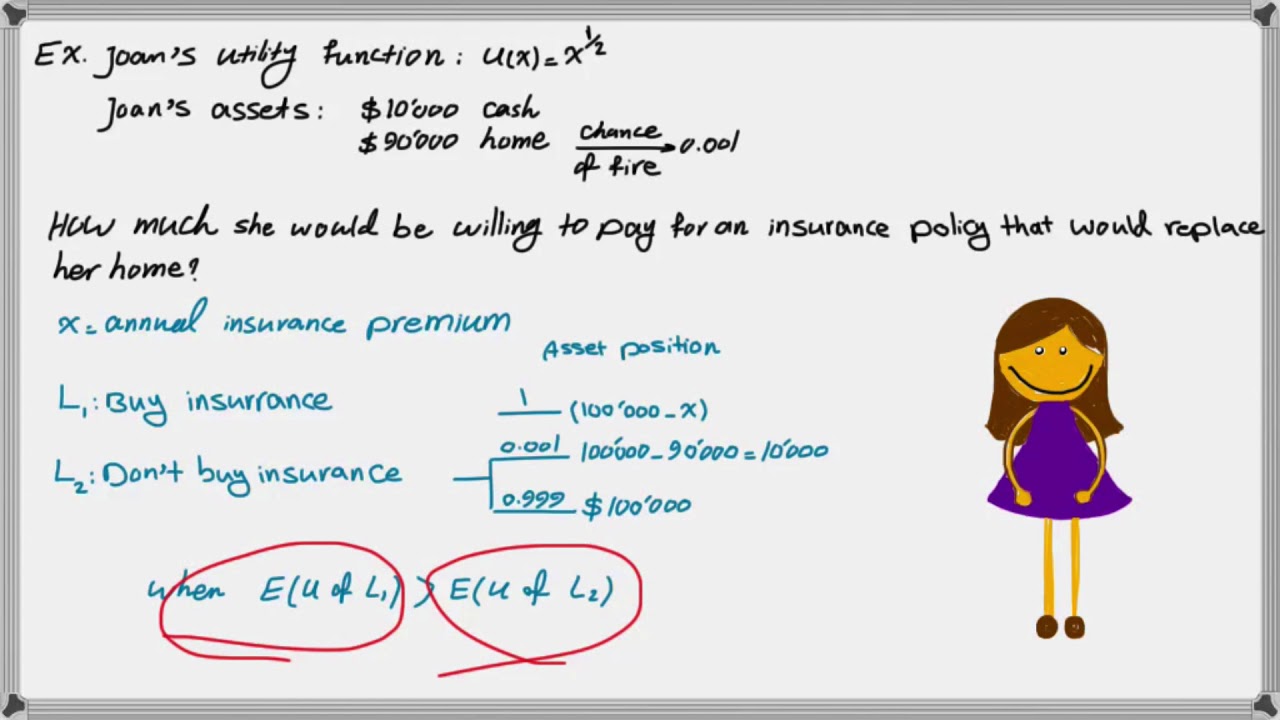 Ex. Joan's utility function: u(x)=x^1/2
Joan's assets: $10'000 cash
$90'000 home chance of fire → 0.001
How much she would be willing to pay for an insurance policy that would replace
her home?
x = annual insurance premium
Asset position
L₁: Buy insurrance 1 (100'000 - x)
0.001 100'000 - 90'000 = 10'000
L₂: Don't buy insurance
0.999 $100'000
when E(u of L₁) > E(u of L₂)